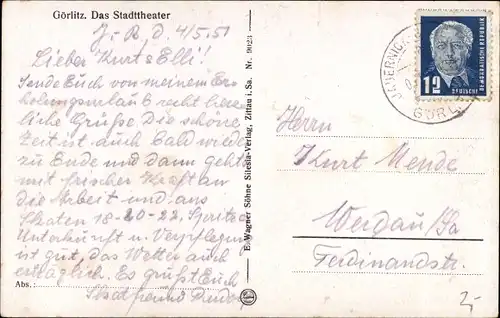 Görlitz. Das Stadttheater
J.-R. d. 4/5.51
Lieber Kurt & Elli!
Sende Euch von meinem Er-
holungsurlaub recht herz-
liche Grüße Die schöne
Zeit ist auch bald wieder
zu Ende und dann gehts
mit frischer Kraft an
die Arbeit und ans
Skaten 18-20-22
Unterkunft u. Verpflegung
ist gut, das Wetter auch
erträglich. Es grüßt Euch
Skatfreund
Abs.:
E. Wagner Söhne Silesia-Verlag, Zittau i. Sa. Nr. 9023
GÖRL
12
DEUTSCHE
DEMOKRATISCHE REPUBLIK
Herrn
Kurt Mende
Werdau/Sa
Ferdinandstr.
2,-